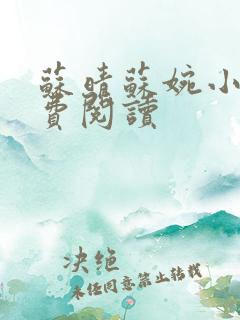 蘇晴蘇婉小
費閱讀
决绝
未经同意禁止转载